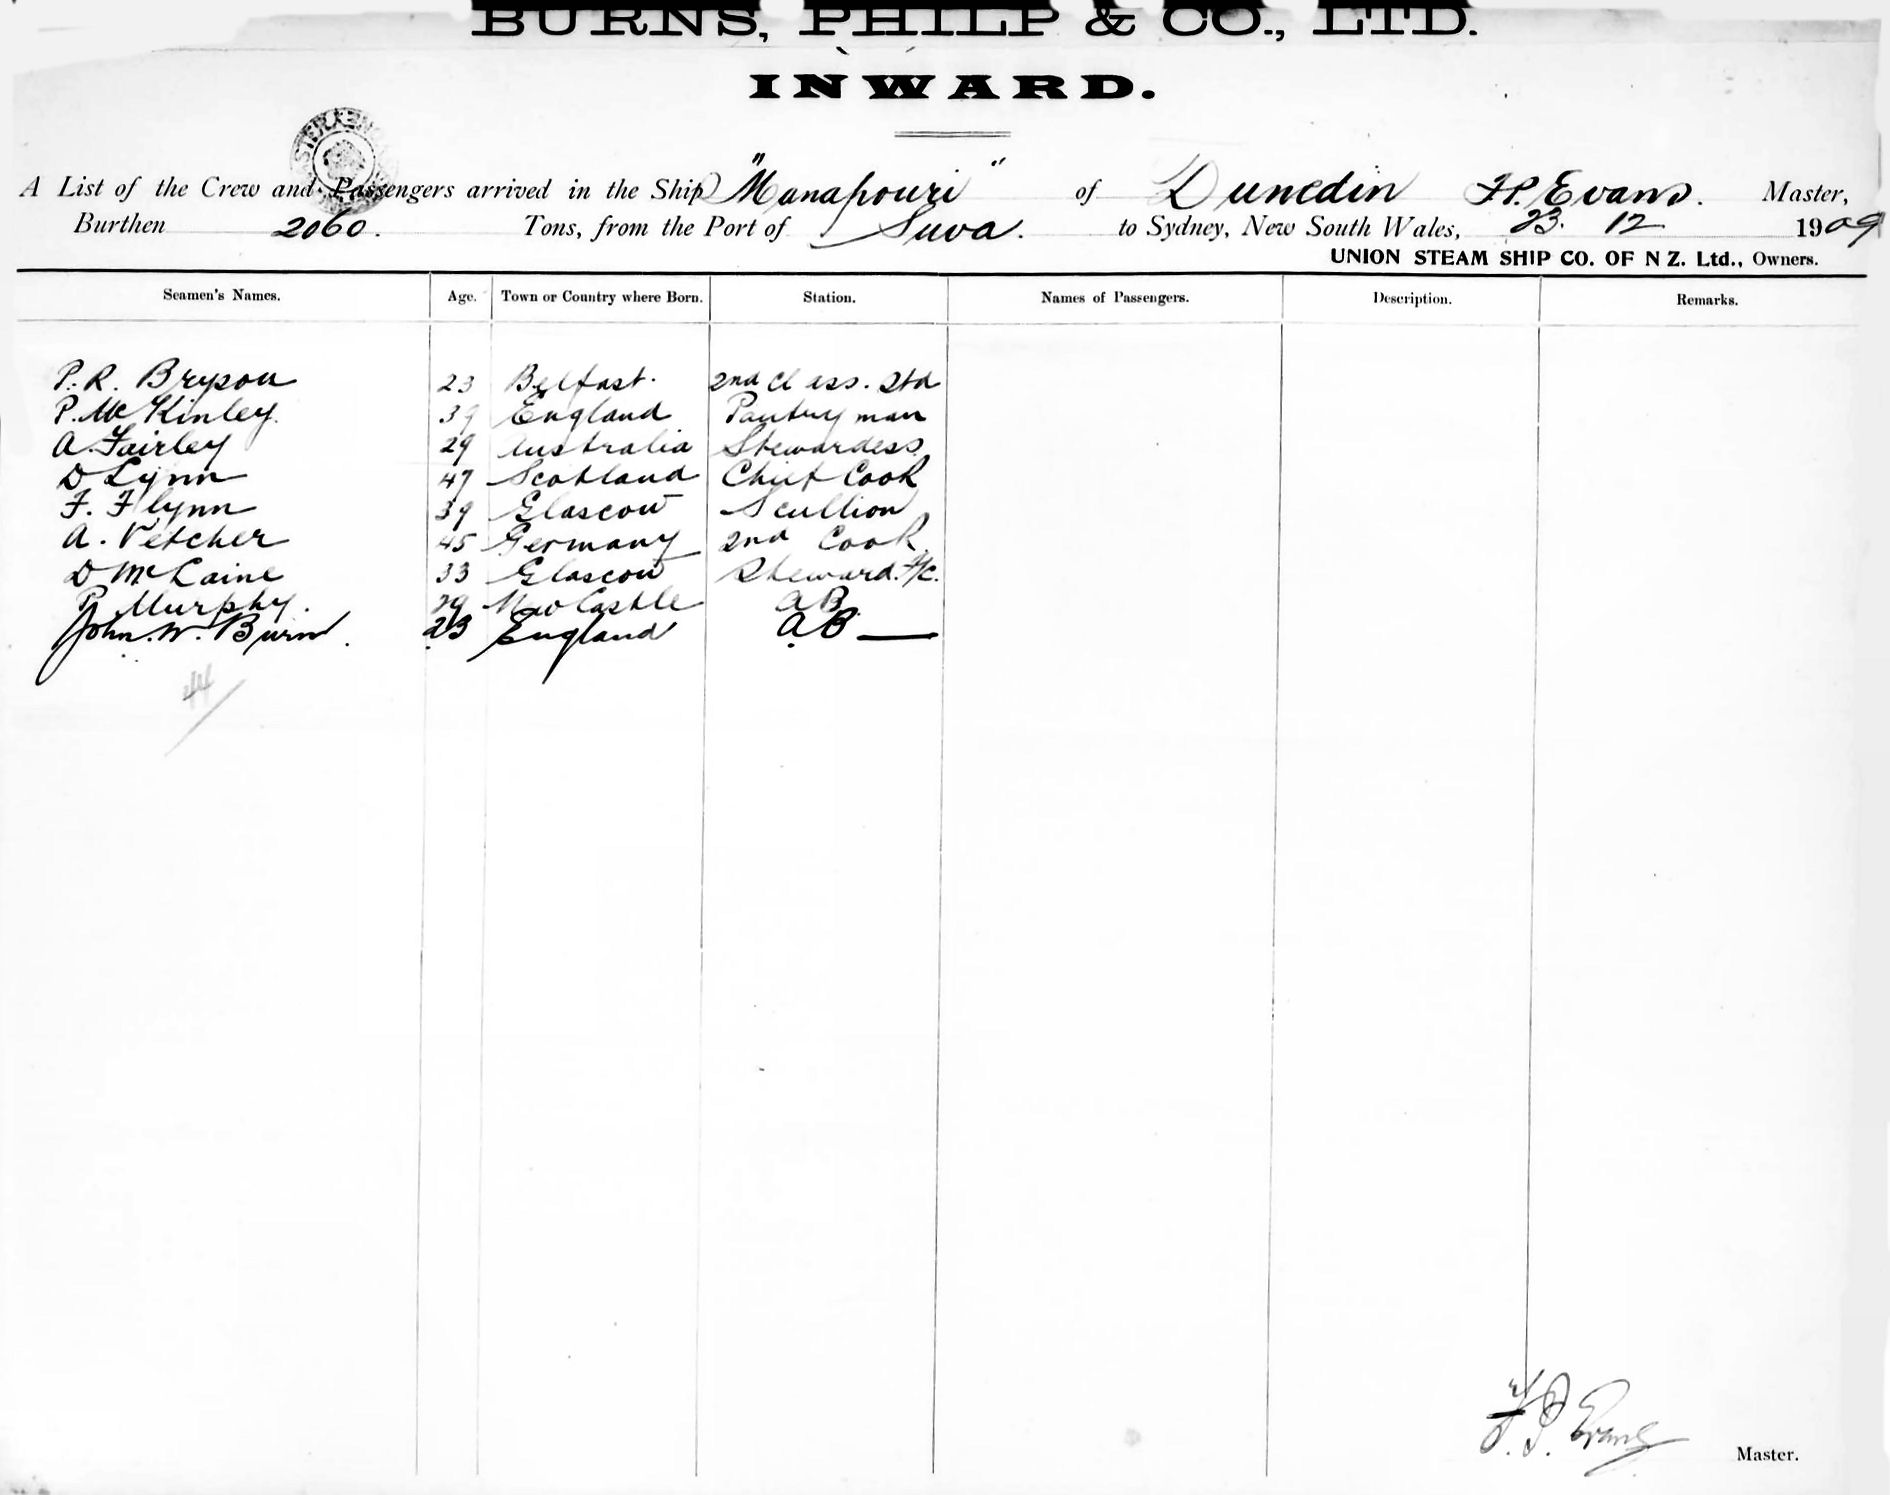 BURNS, PHILP & CO., LTD.
INWARD.
A List of the Crew and Passengers arrived in the Ship "Manapouri" of Dunedin F.P. Evans. Master,
Burthen 2060. Tons, from the Port of Suva. to Sydney, New South Wales, 23. 12 1909
UNION STEAM SHIP CO. OF N Z. Ltd., Owners.
Seamen's Names. Age. Town or Country where Born. Station. Names of Passengers. Description. Remarks.
P. R. Bryson 23 Belfast. 2nd Class. Std
P. McKinley. 39 England Pantry man
A. Fairley 29 Australia Stewardess.
D Lynn 47 Scotland Chief Cook
F. Flynn 39 Glascow Scullion
A. Vetcher 45 Germany 2nd Cook
D McLaine 33 Glascow Steward. F/c.
P. Murphy. 29 NewCastle AB.
John. W. Burn. 23 England AB
44
F. P. Evans
Master.